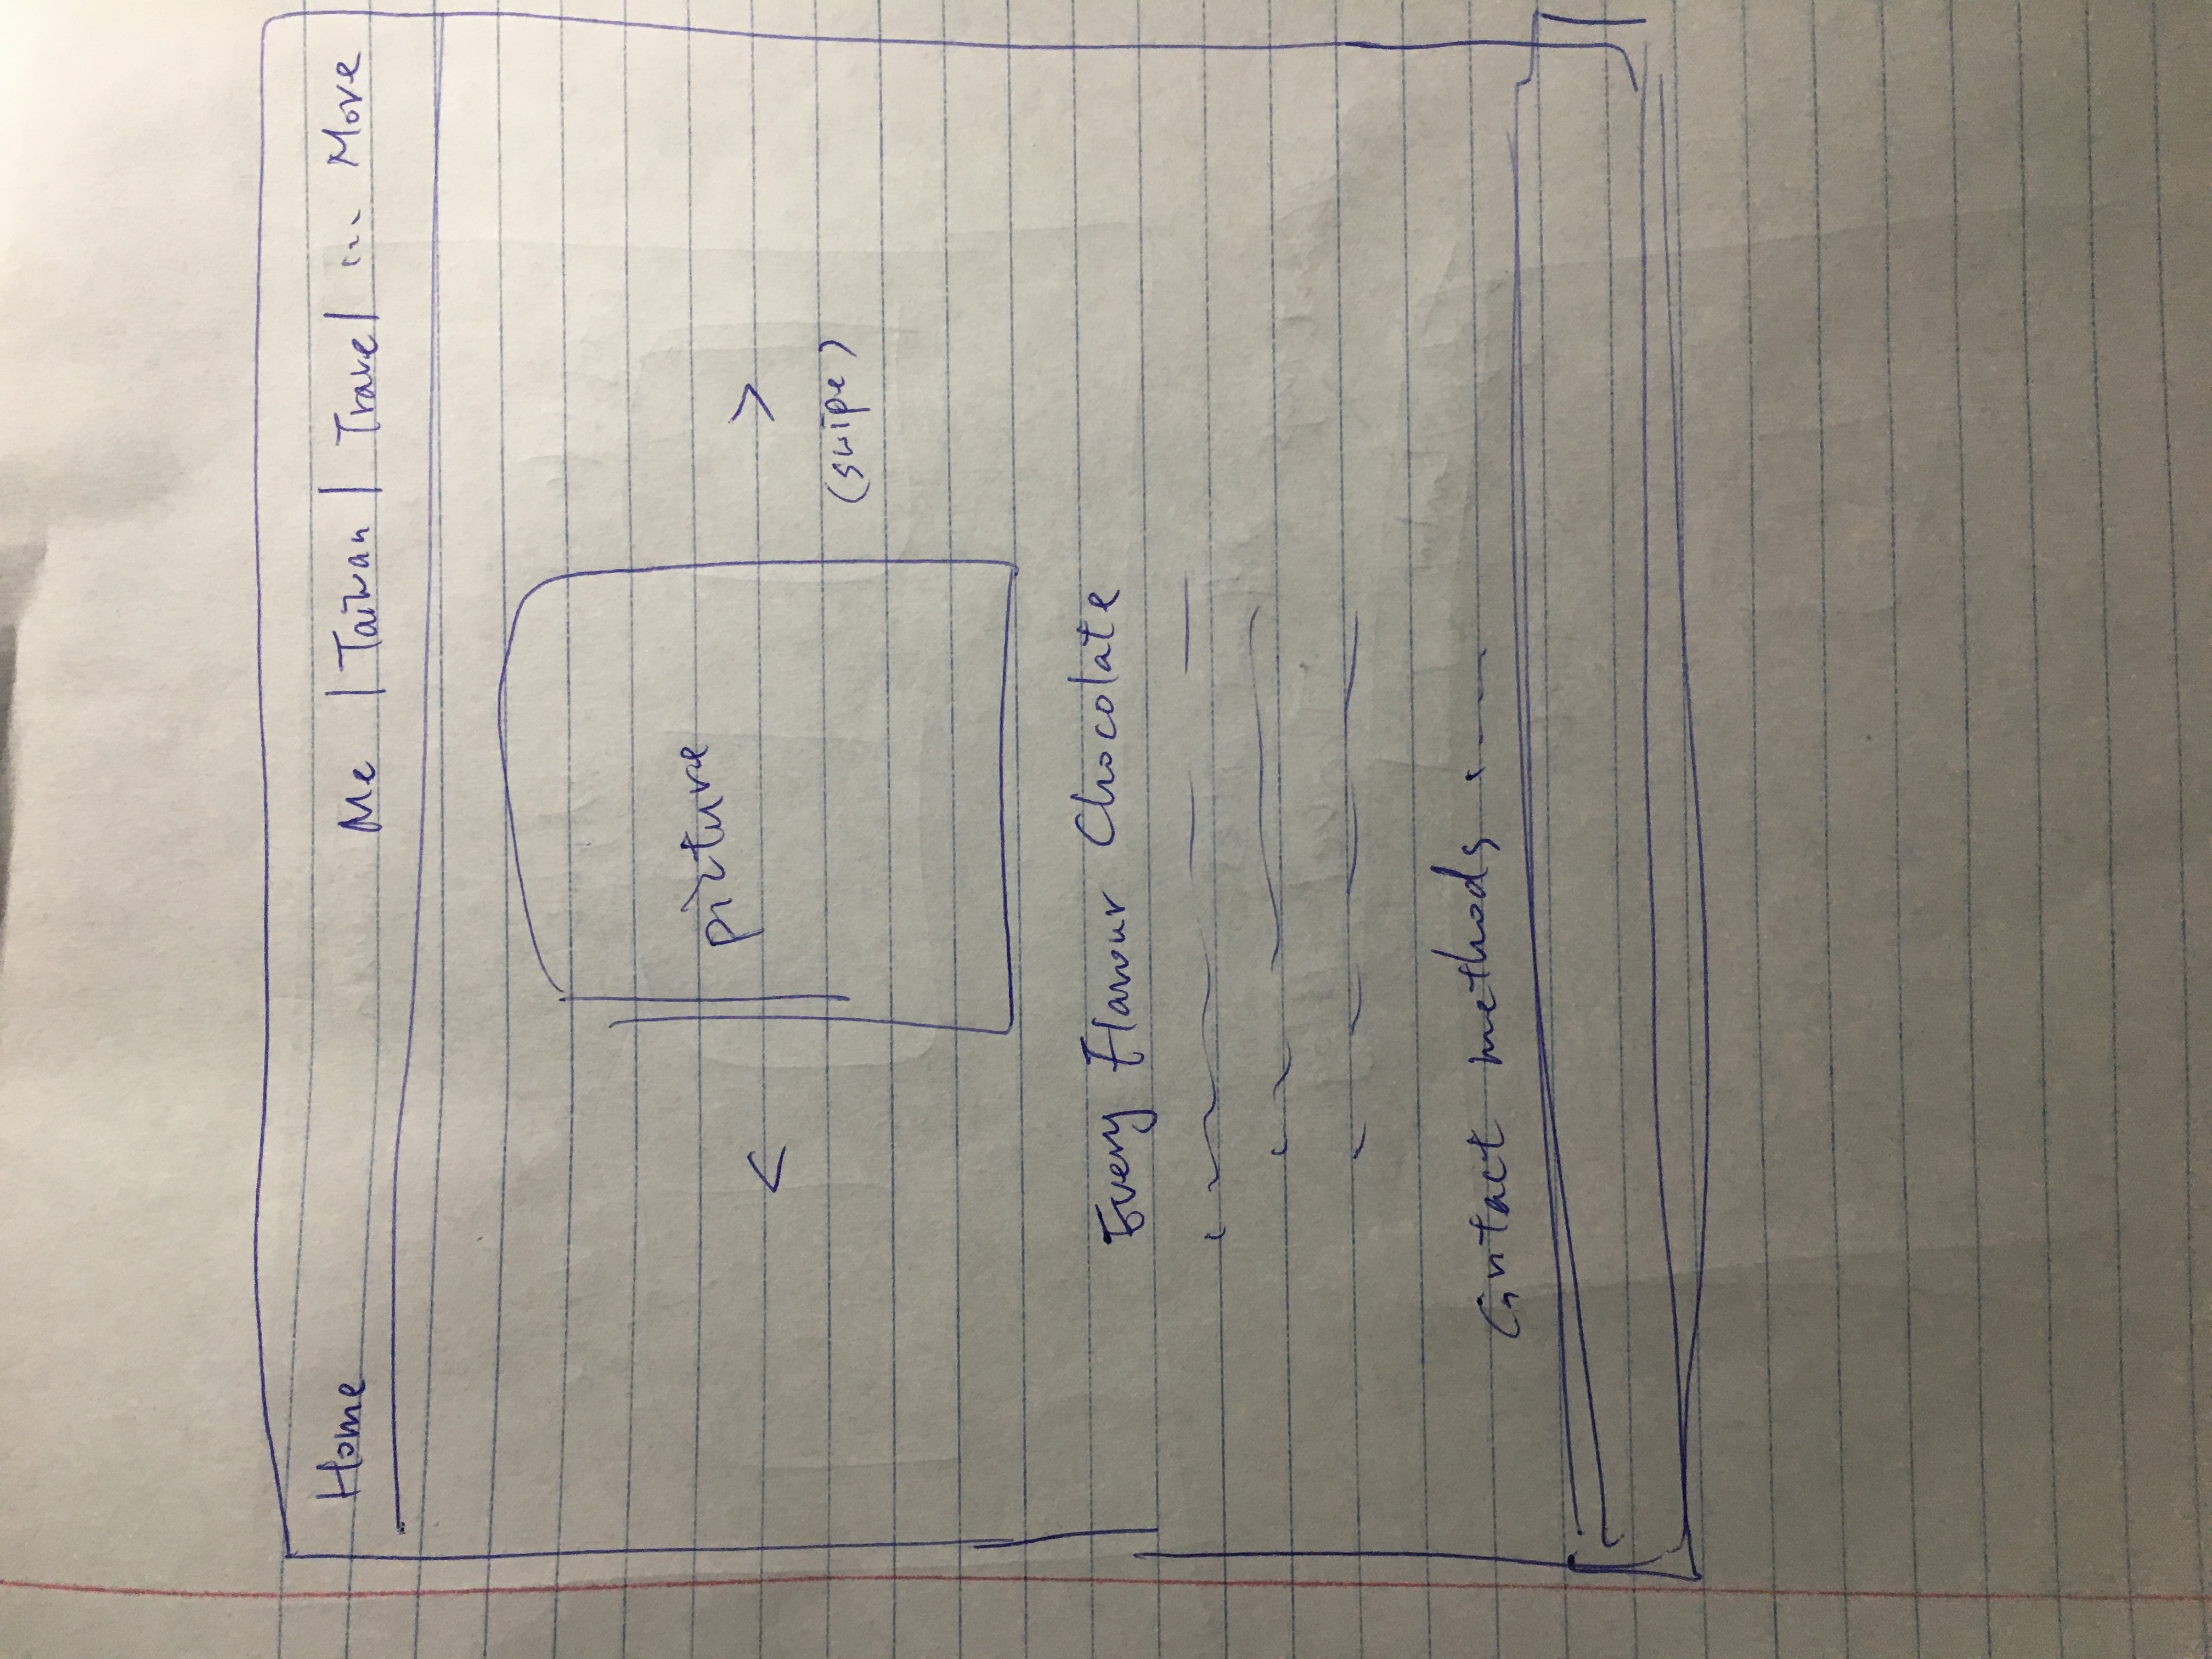 Home Me | Taiwan | Travel ... More
picture
< >
(swipe)
Every Flavour Chocolate
Contact methods .....